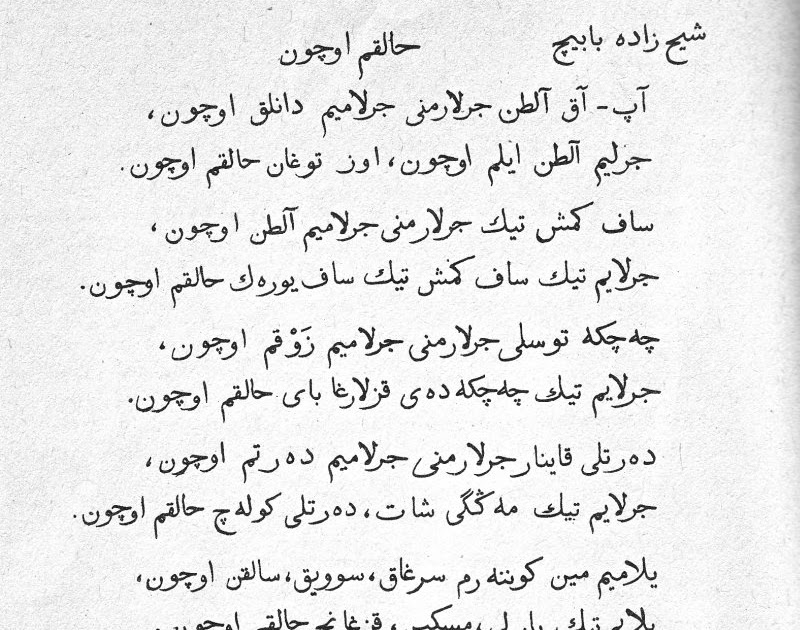 شیح زاده بابیچ
حالقم اوچون
آپ - آق آلطن جرلارمنی جرلامیم دانلق اوچون،
جرلیم آلطن ایلم اوچون، اوز توغان حالقم اوچون.
ساف کمش تیك جرلارمنی جرلامیم آلطن اوچون،
جرلایم تیك ساف کمش تیك ساف یوره‌ك حالقم اوچون.
چه‌چکه توسلی جرلارمنی جرلامیم زَوْقم اوچون،
جرلایم تیك چه‌چکه ده‌ی قزلارغا بای حالقم اوچون.
ده‌رتلی قاینار جرلارمنی جرلامیم ده‌رتم اوچون،
جرلایم تیك مه‌ڭگی شات، ده‌رتلی کوله‌چ حالقم اوچون.
یلامیم مین کوننه‌رم سرغاق، سوویق، سالقن اوچون،